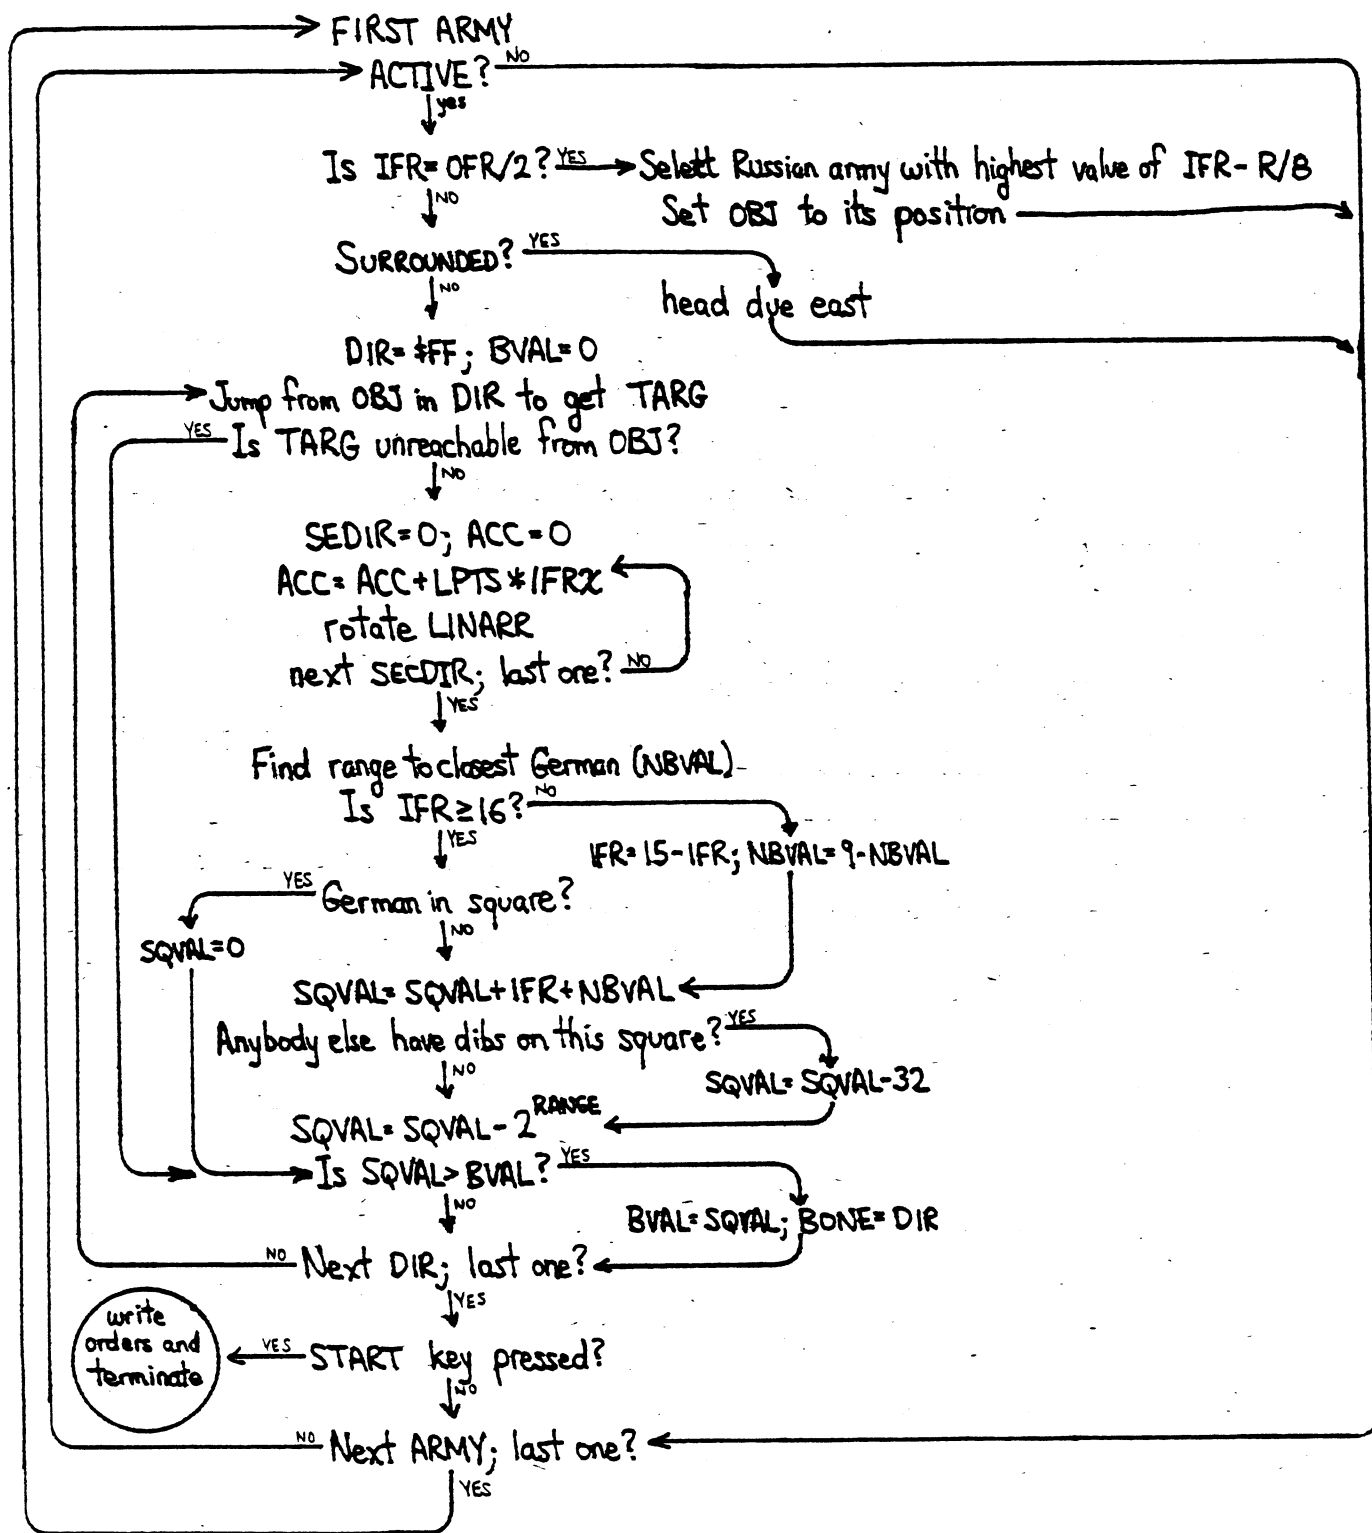 FIRST ARMY
ACTIVE? NO
yes
Is IFR=OFR/2? YES Selett Russian army with highest value of IFR-R/8
NO Set OBJ to its position
SURROUNDED? YES
NO
head due east
DIR=$FF; BVAL=0
Jump from OBJ in DIR to get TARG
YES Is TARG unreachable from OBJ?
NO
SEDIR=0; ACC=0
ACC=ACC+LPTS*IFRX
rotate LINARR
next SECDIR; last one? NO
YES
Find range to closest German (NBVAL)
Is IFR≥16? NO
YES
IFR=15-IFR; NBVAL=9-NBVAL
YES German in square?
NO
SQVAL=0
SQVAL=SQVAL+IFR+NBVAL
Anybody else have dibs on this square? YES
NO
SQVAL=SQVAL-32
SQVAL=SQVAL-2^RANGE
Is SQVAL>BVAL? YES
NO
BVAL=SQVAL; BONE=DIR
NO Next DIR; last one?
YES
write
orders and
terminate
YES START key pressed?
NO
NO Next ARMY; last one?
YES